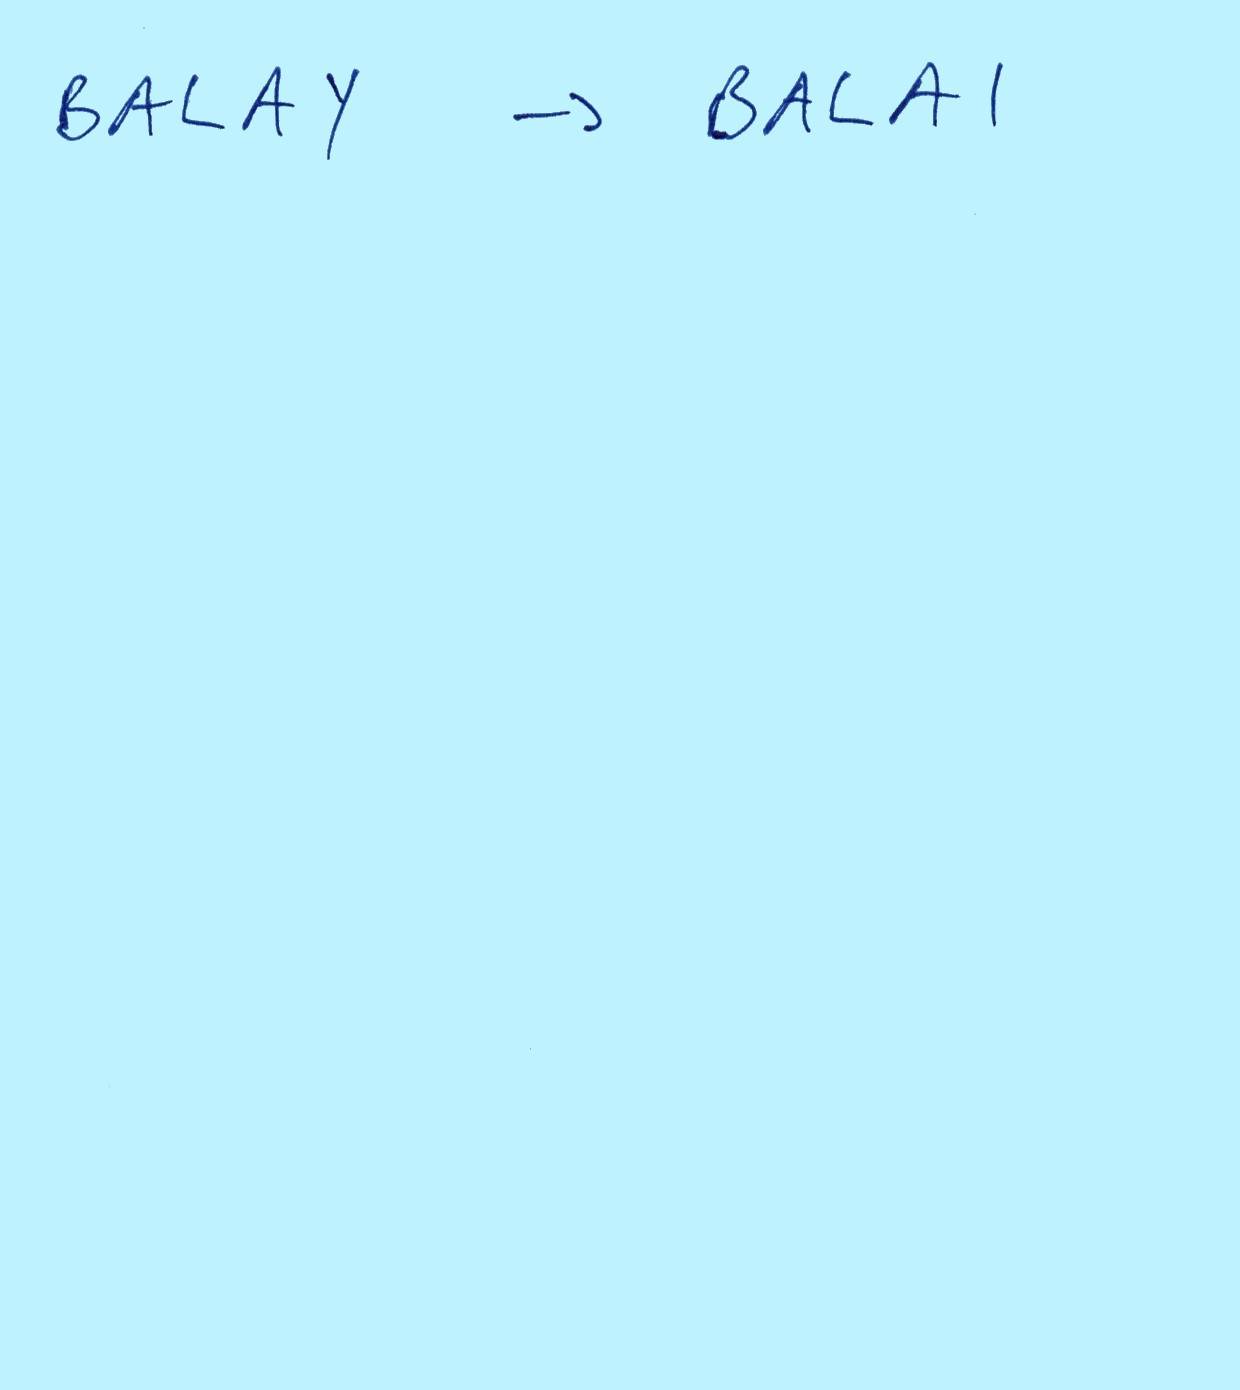 BALAY → BALAI